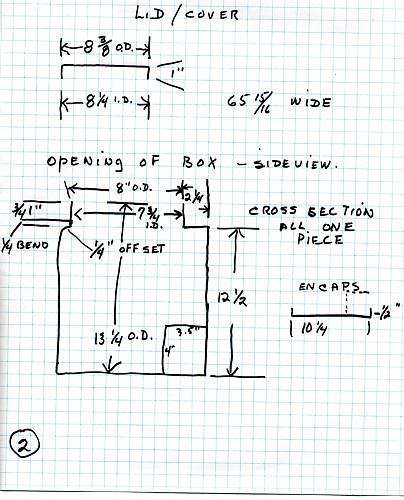 LID/COVER
8 3/8 O.D.
1"
8 1/4 I.D.
65 15/16 WIDE
OPENING OF BOX - SIDEVIEW.
8" O.D.
2 1/4
3/4 1"
7 3/4 I.D.
CROSS SECTION
ALL ONE
PIECE
1/4 BEND
1/4" OFFSET
12 1/2
ENCAPS
1/2"
10 1/4
13 1/4 O.D.
3.5"
4"
2